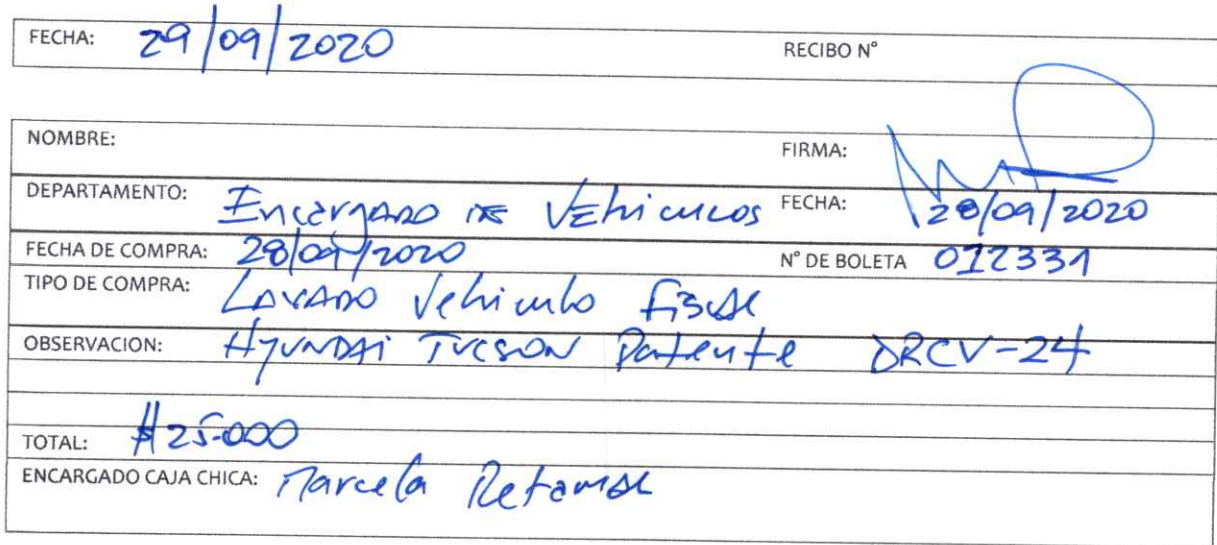 FECHA: 29/09/2020 RECIBO N°
NOMBRE: FIRMA:
DEPARTAMENTO: Encargado de Vehiculos FECHA: 28/09/2020
FECHA DE COMPRA: 28/09/2020 N° DE BOLETA 012331
TIPO DE COMPRA: Lavado Vehiculo Fiscal
OBSERVACION: Hyundai Tucson Patente DRCV-24
TOTAL: $25.000
ENCARGADO CAJA CHICA: Marcela Retamal